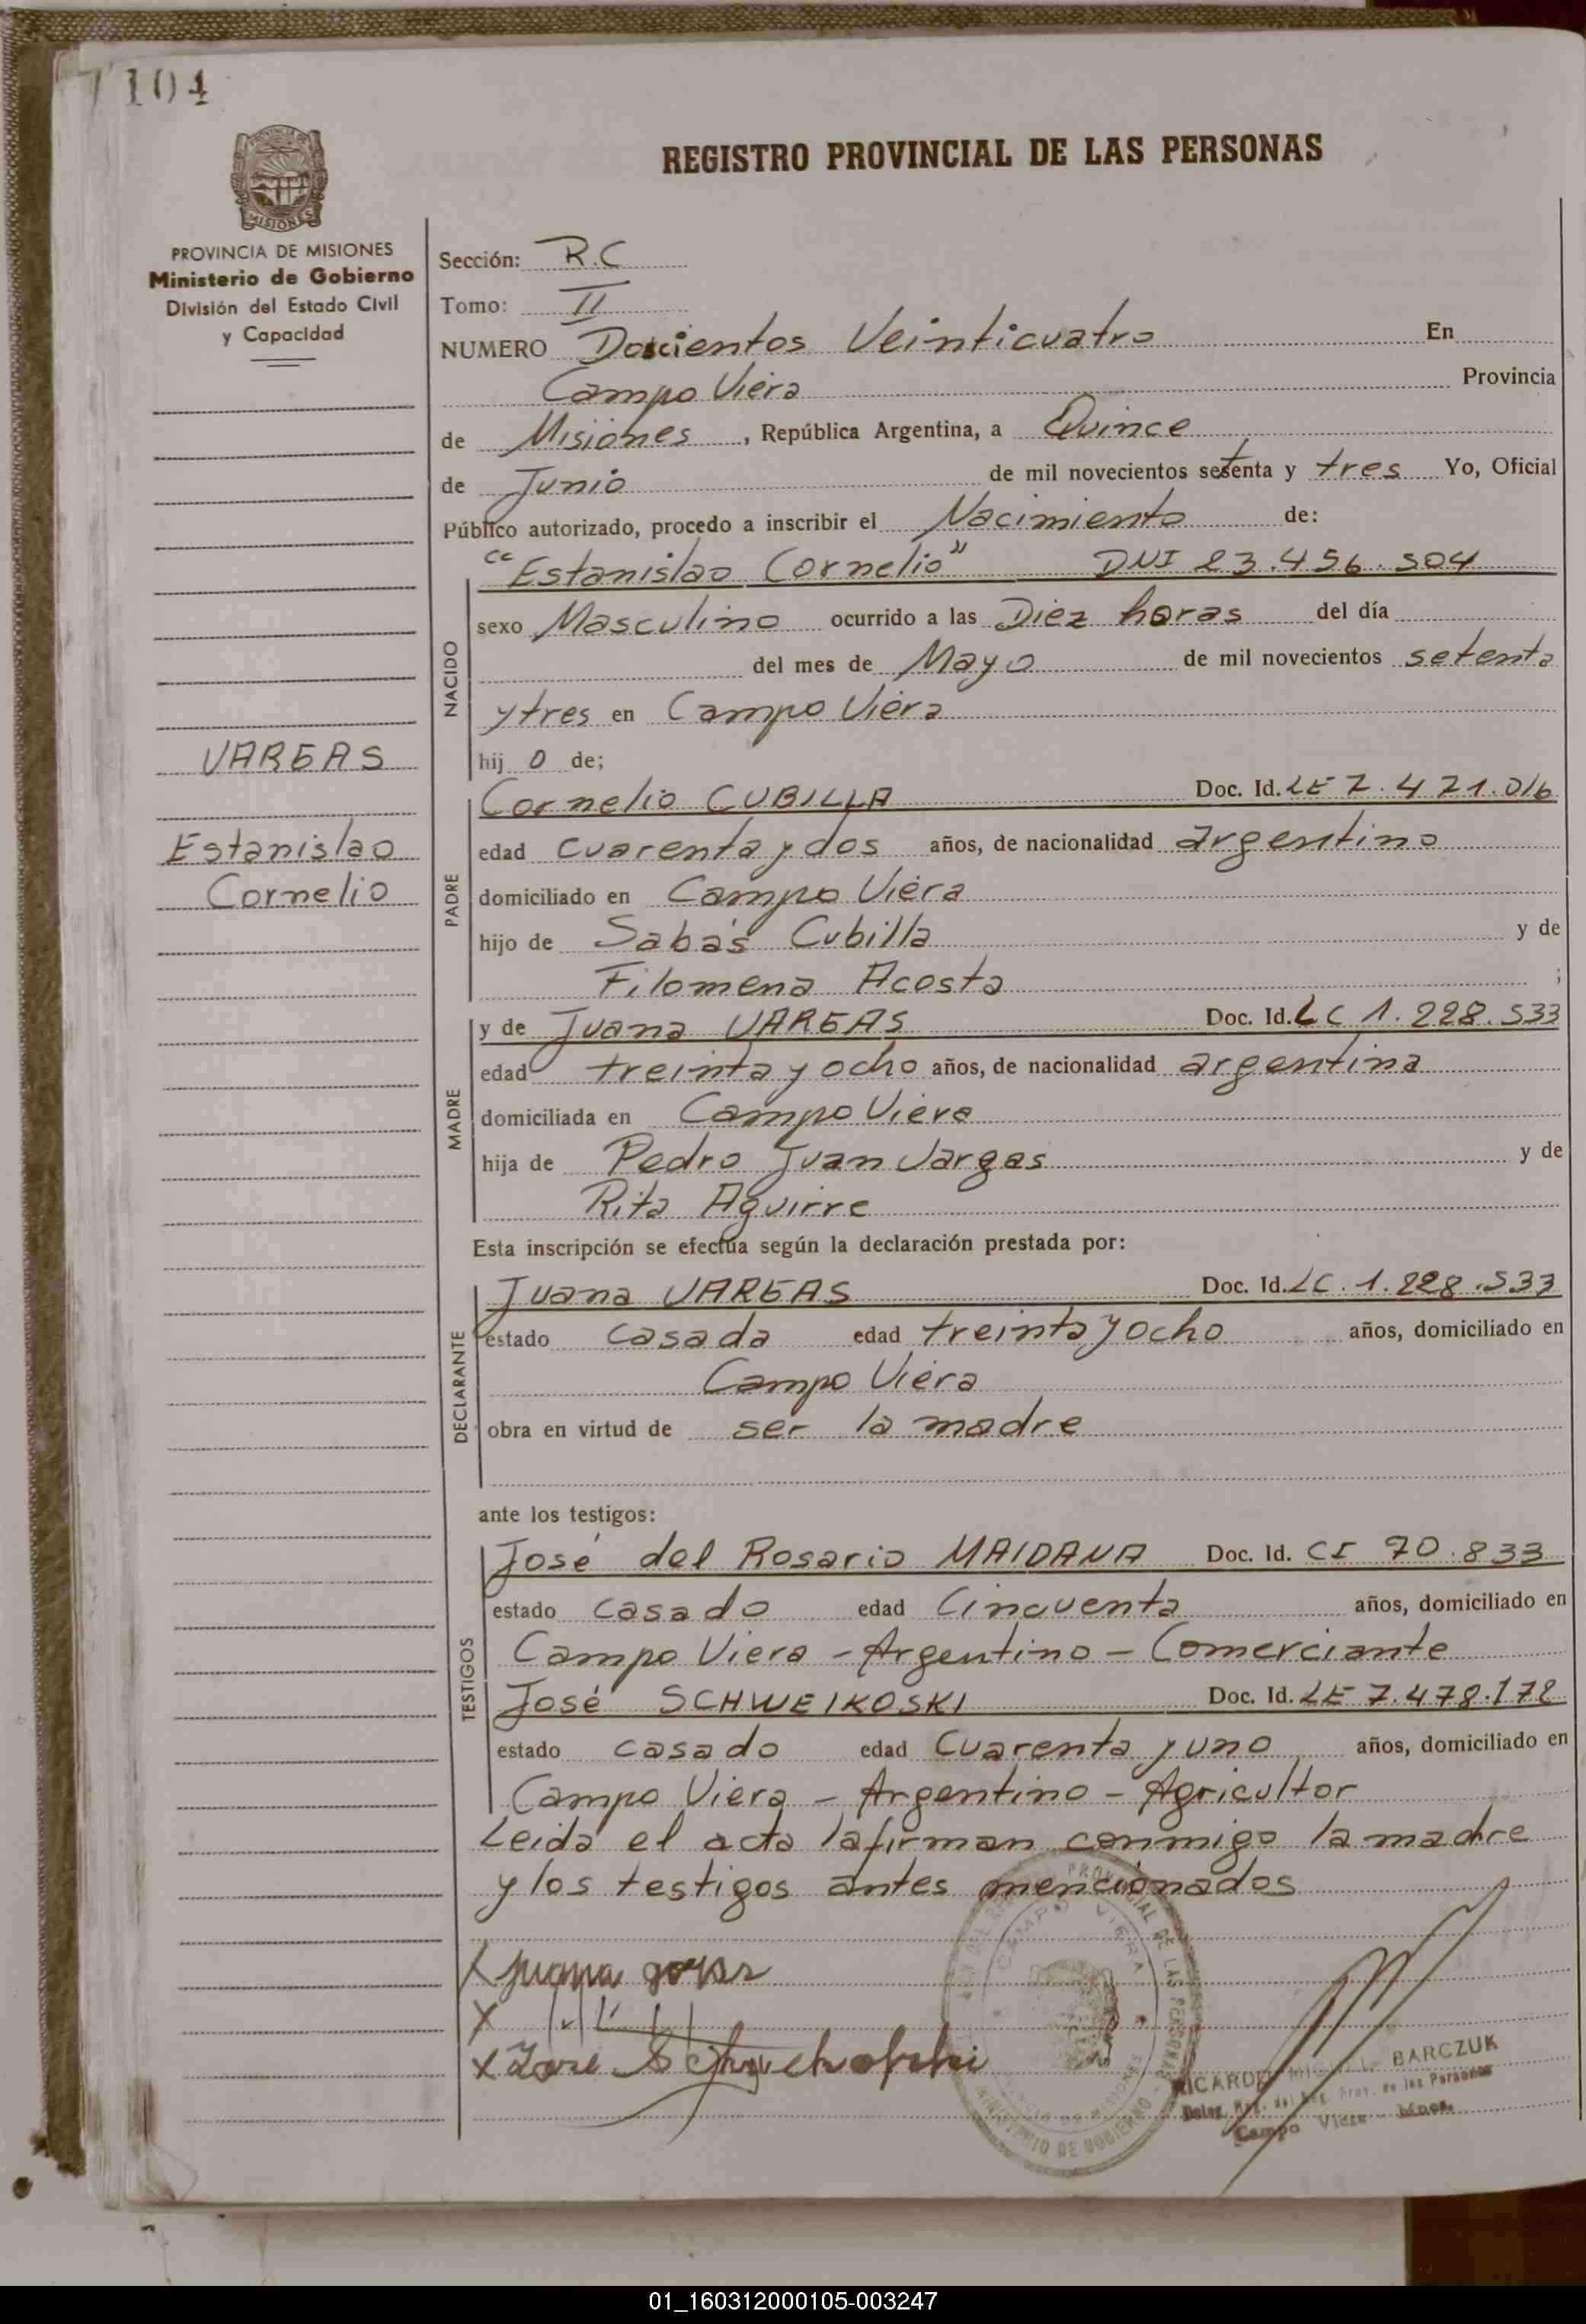 104
PROVINCIA DE MISIONES
Ministerio de Gobierno
División del Estado Civil
y Capacidad
VARGAS
Estanislao
Cornelio
REGISTRO PROVINCIAL DE LAS PERSONAS
Sección: R.C
Tomo: II
NUMERO Doscientos Veinticuatro En
Campo Viera Provincia
de Misiones , República Argentina, a Quince
de Junio de mil novecientos setenta y tres Yo, Oficial
Público autorizado, procedo a inscribir el Nacimiento de:
"Estanislao Cornelio" DNI 23.456.504
NACIDO
sexo Masculino ocurrido a las Diez horas del día
del mes de Mayo de mil novecientos setenta
y tres en Campo Viera
hij o de;
PADRE
Cornelio CUBILLA Doc. Id. LE 7.471.016
edad cuarenta y dos años, de nacionalidad argentino
domiciliado en Campo Viera
hijo de Sabás Cubilla y de
Filomena Acosta ;
MADRE
y de Juana VARGAS Doc. Id. LC 1.228.533
edad treinta y ocho años, de nacionalidad argentina
domiciliada en Campo Viera
hija de Pedro Juan Vargas y de
Rita Aguirre
Esta inscripción se efectúa según la declaración prestada por:
DECLARANTE
Juana VARGAS Doc. Id. LC. 1.228.533
estado casada edad treinta y ocho años, domiciliado en
Campo Viera
obra en virtud de ser la madre
ante los testigos:
TESTIGOS
José del Rosario MAIDANA Doc. Id. CI 70.833
estado casado edad Cincuenta años, domiciliado en
Campo Viera - Argentino - Comerciante
José SCHWEIKOSKI Doc. Id. LE 7.478.178
estado casado edad Cuarenta y uno años, domiciliado en
Campo Viera - Argentino - Agricultor
Leida el acta la firman conmigo la madre
y los testigos antes mencionados
X Juana
X
X Jose
CAMPO VIERA
MINISTERIO DE GOBIERNO
RICARDO BARCZUK
Campo Viera - Mnes.
01_160312000105-003247